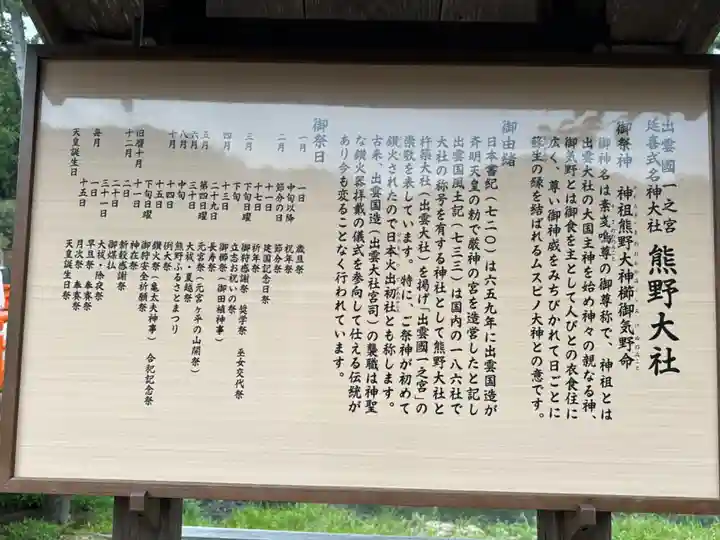 出雲國一之宮
延喜式名神大社
熊野大社
御祭神　神祖熊野大神櫛御気野命
御神名は素戔嗚尊の御尊称で、神祖とは
出雲大社の大国主神を始め神々の親なる神、
御気野とは御食を主として人びとの衣食住に
広く、尊い御神威をみちびかれて日ごとに
蘇生の縁を結ばれるムスビノ大神との意です。
御由緒
日本書紀(七二〇)は六五九年に出雲国造が
斉明天皇の勅で厳神の宮を造営したと記し
出雲国風土記(七三三)は国内の一八六社で
大社の称号を有する神社として熊野大社と
杵築大社(出雲大社)を掲げ「出雲國一之宮」の
崇敬を表しています。特に、ご祭神が初めて
鑽火されたので日本火出初社とも称します。
古来、出雲国造(出雲大社宮司)の襲職は神聖
な鑽火器拝戴の儀式を参向して仕える伝統が
あり今も変ることなく行われています。
御祭日
一月　一日　歳旦祭
中旬以降　祝年祭
二月　節分の日　節分祭
十一日　建国記念日祭
十七日　祈年祭
三月　下旬日曜　御狩感謝祭　奨学祭　巫女交代祭
下旬　立志お祝いの祭
四月　十三日　御櫛祭(御田植神事)
二十九日　長寿祭
五月　第四日曜　元宮祭(元宮ヶ平の山開祭)
六月　三十日　大祓・夏越祭
八月　中旬　熊野ふるさとまつり
十月　十四日　例大祭
十五日　鑽火祭(亀太夫神事)
下旬日曜　御狩安全祈願祭　合祀記念祭
旧暦十月　神在祭
十二月　二十日　新穀感謝祭
二十日　御煤払
三十一日　大祓・除夜祭
毎月　一日　早旦祭　奉賽祭
十五日　月次祭　奉賽祭
天皇誕生日　天皇誕生日祭